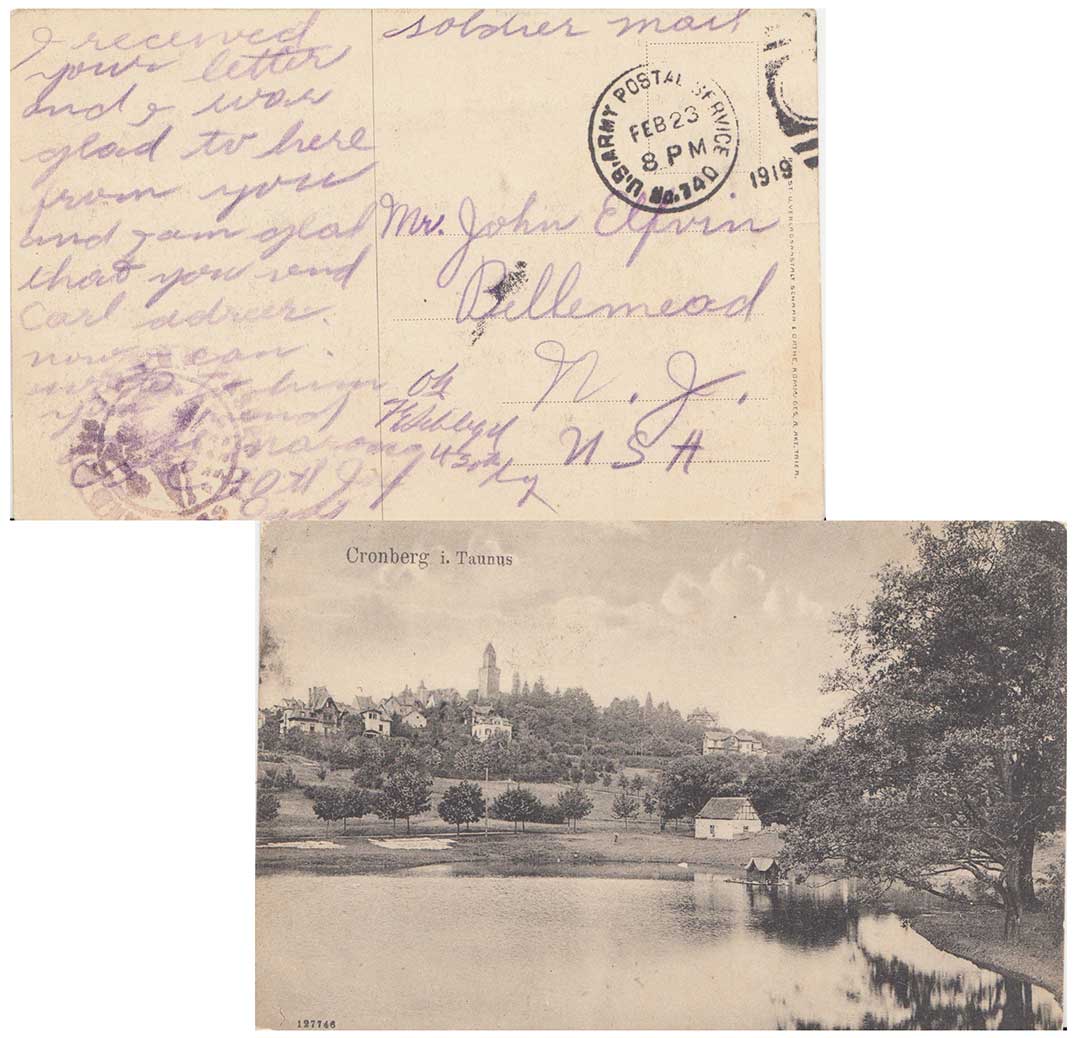 I received
your letter
and I was
glad to here
from you
and I am glad
that you send
Carl adrees.
now I can
write to him
your friend
Co C
soldier mail
U.S. ARMY POSTAL SERVICE
FEB 23
8 PM
No. 740
1919
Mr. John Elfvin
Bellemead
N. J.
USA
OK
Inf
Cronberg i. Taunus
127746